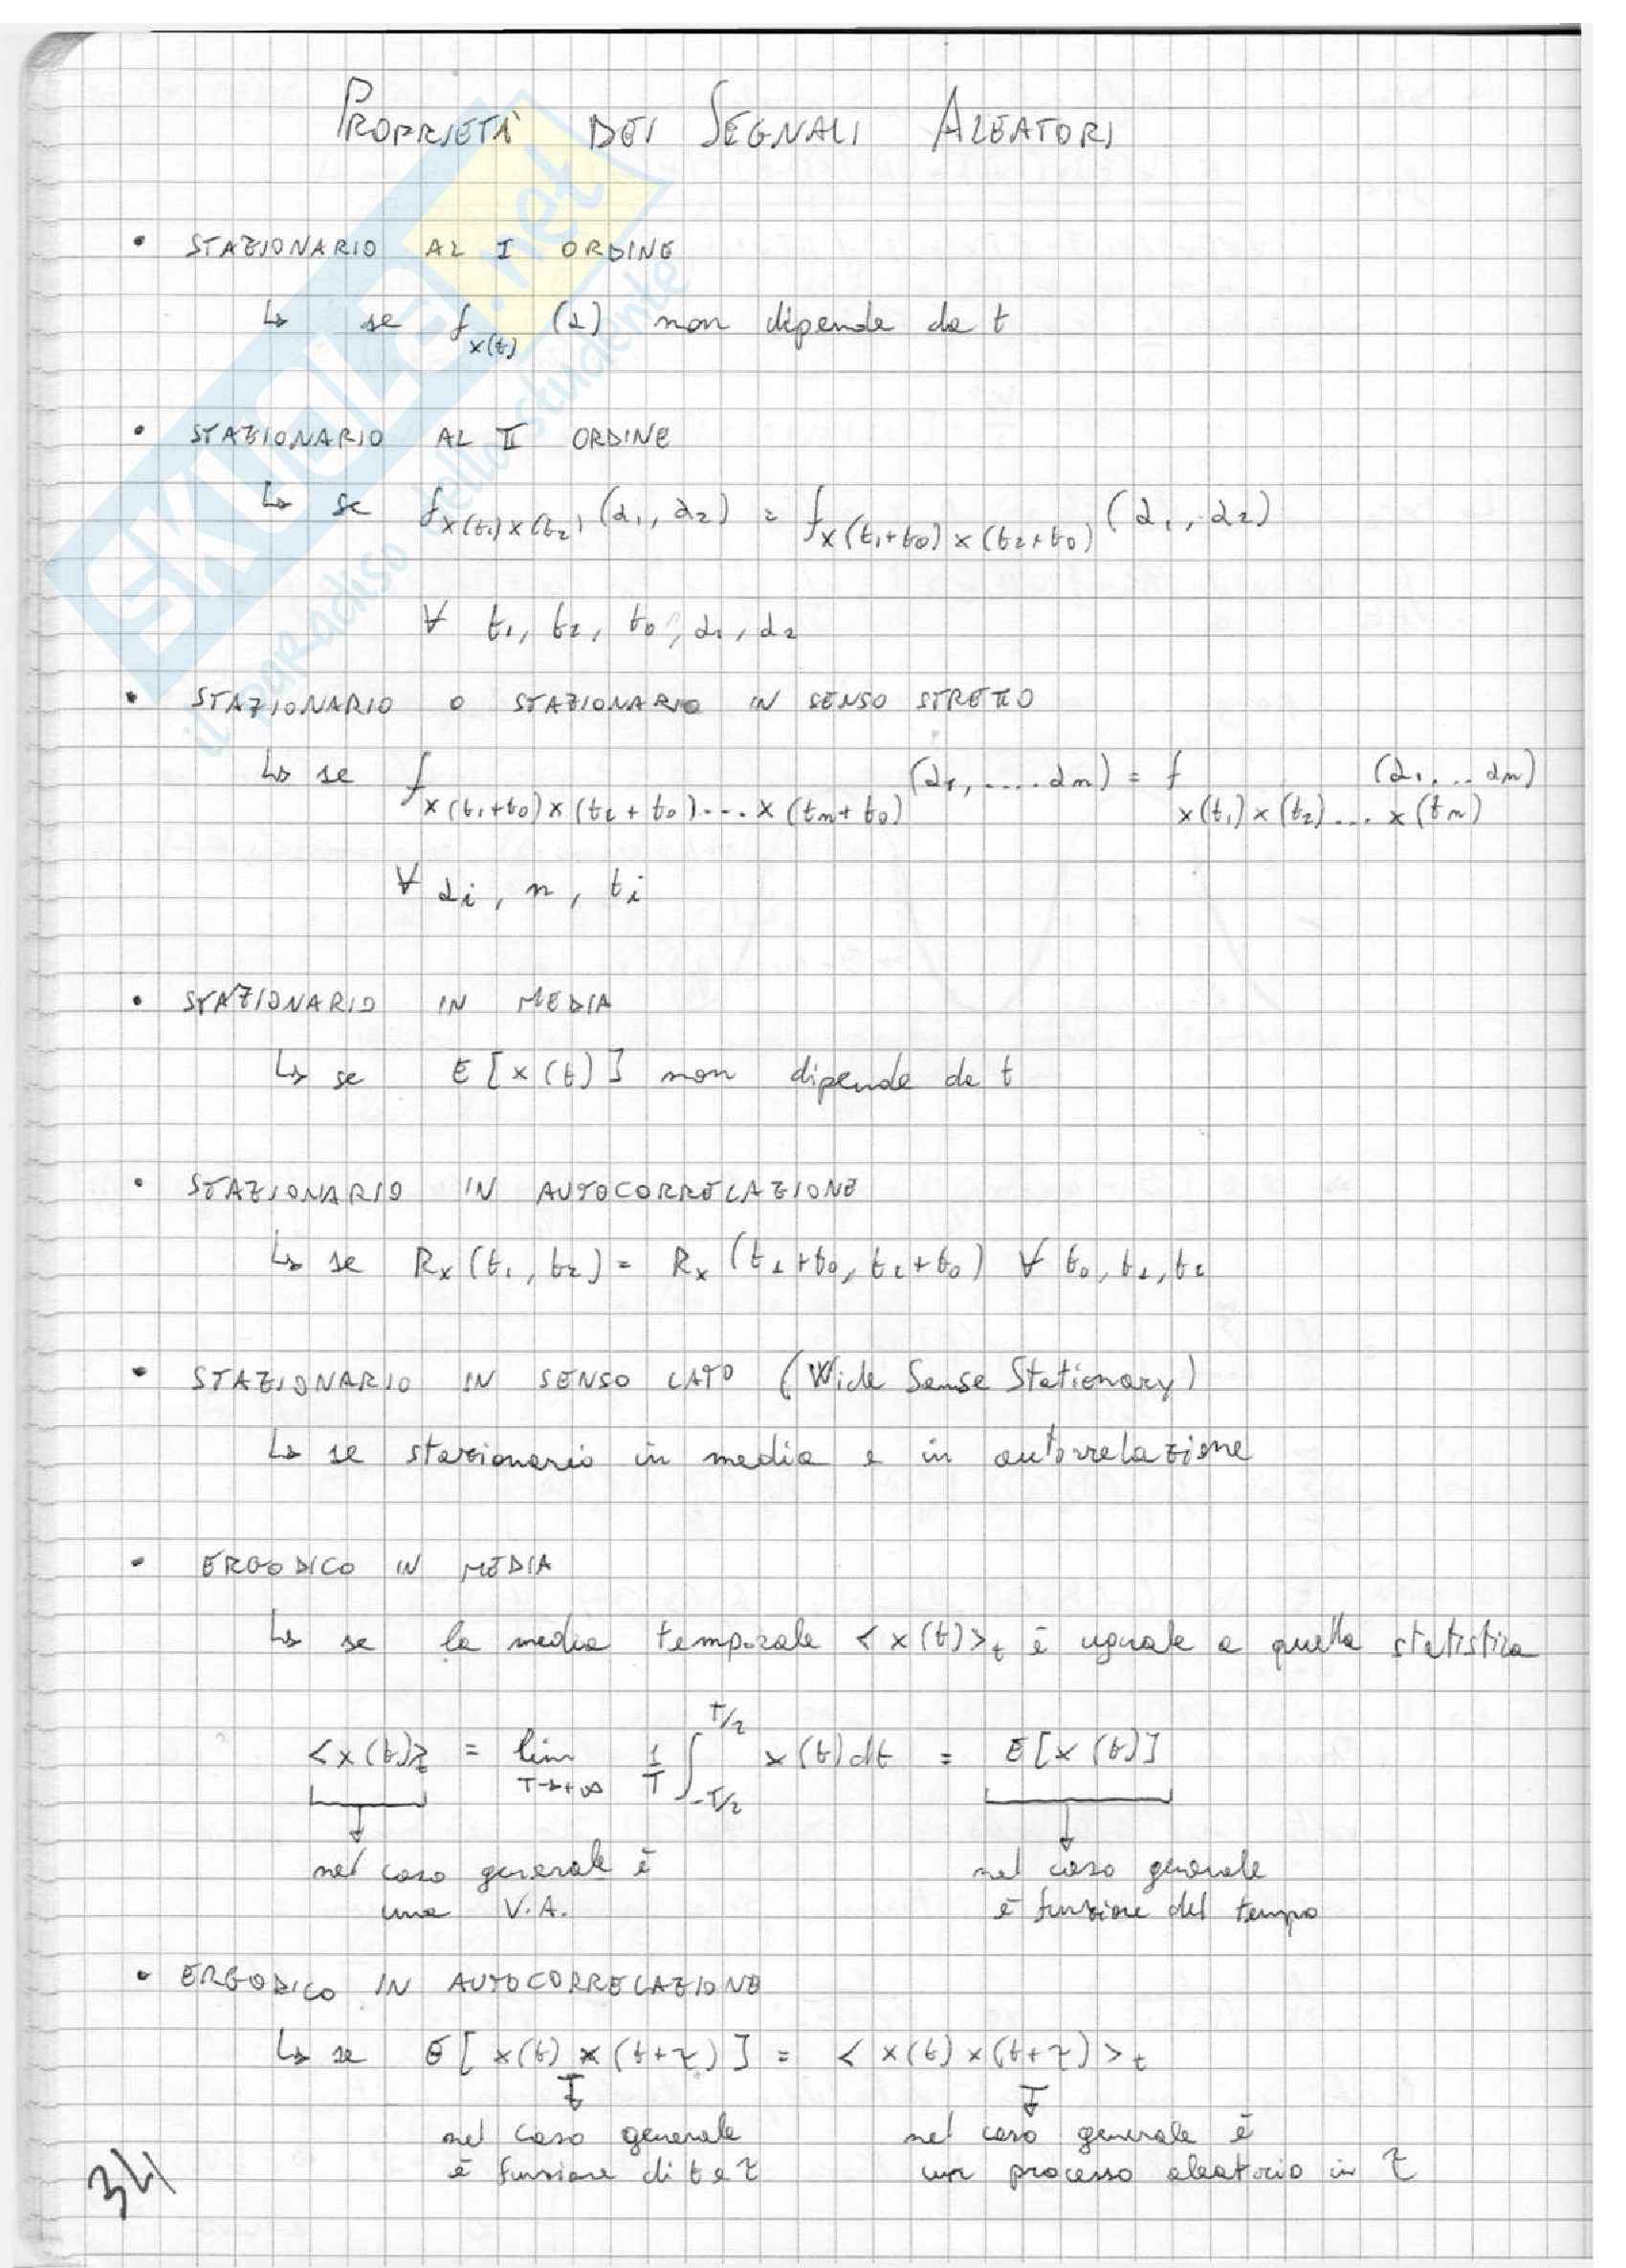 PROPRIETÀ DEI SEGNALI ALEATORI
• STAZIONARIO AL I ORDINE
↳ se f_x(t) (α) non dipende da t
• STAZIONARIO AL II ORDINE
↳ se f_x(t₁)x(t₂) (α₁, α₂) = f_x(t₁+t₀)x(t₂+t₀) (α₁, α₂)
∀ t₁, t₂, t₀, α₁, α₂
• STAZIONARIO O STAZIONARIO IN SENSO STRETTO
↳ se f_x(t₁+t₀)x(t₂+t₀)....x(tₙ+t₀) (α₁, .... αₙ) = f_x(t₁)x(t₂)... x(tₙ) (α₁, ... αₙ)
∀ αᵢ, n, tᵢ
• STAZIONARIO IN MEDIA
↳ se E[x(t)] non dipende da t
• STAZIONARIO IN AUTOCORRELAZIONE
↳ se Rₓ(t₁, t₂) = Rₓ(t₁+t₀, t₂+t₀) ∀ t₀, t₁, t₂
• STAZIONARIO IN SENSO LATO (Wide Sense Stationary)
↳ se stazionario in media e in autorrelazione
• ERGODICO IN MEDIA
↳ se la media temporale <x(t)>ₜ è uguale a quella statistica
<x(t)>ₜ = lim T→+∞ 1/T ∫_-T/2^T/2 x(t)dt = E[x(t)]
nel caso generale è nel caso generale
una V.A. è funzione del tempo
• ERGODICO IN AUTOCORRELAZIONE
↳ se E[x(t) x(t+τ)] = <x(t) x(t+τ)>ₜ
nel caso generale nel caso generale è
è funzione di t e τ un processo aleatorio in τ
34
SKUOLA.net
il paradiso dello studente